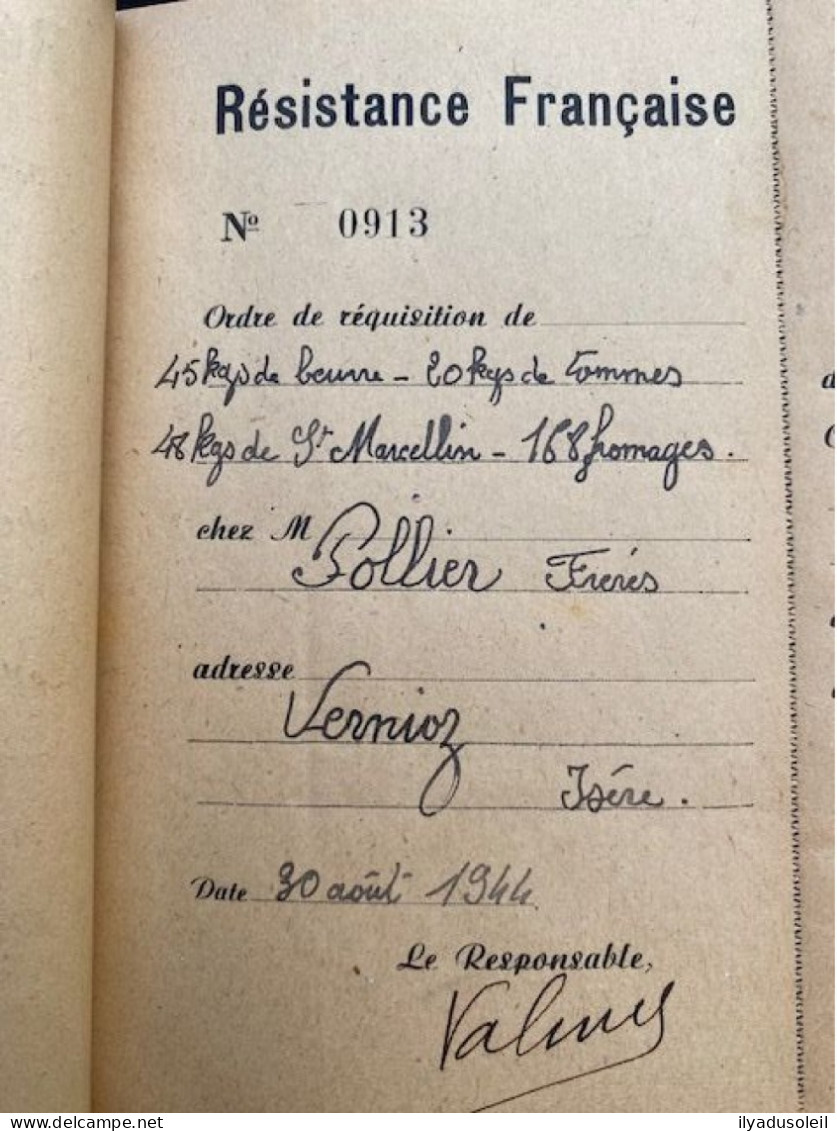 Résistance Française
Nº 0913
Ordre de réquisition de
45 kgs de beurre - 20 kgs de tommes
48 kgs de St Marcellin - 168 fromages.
chez M
Pollier Frérés
adresse
Vernioz
Isére.
Date 30 août 1944
Le Responsable,
delcampe.net
ilyadusoleil